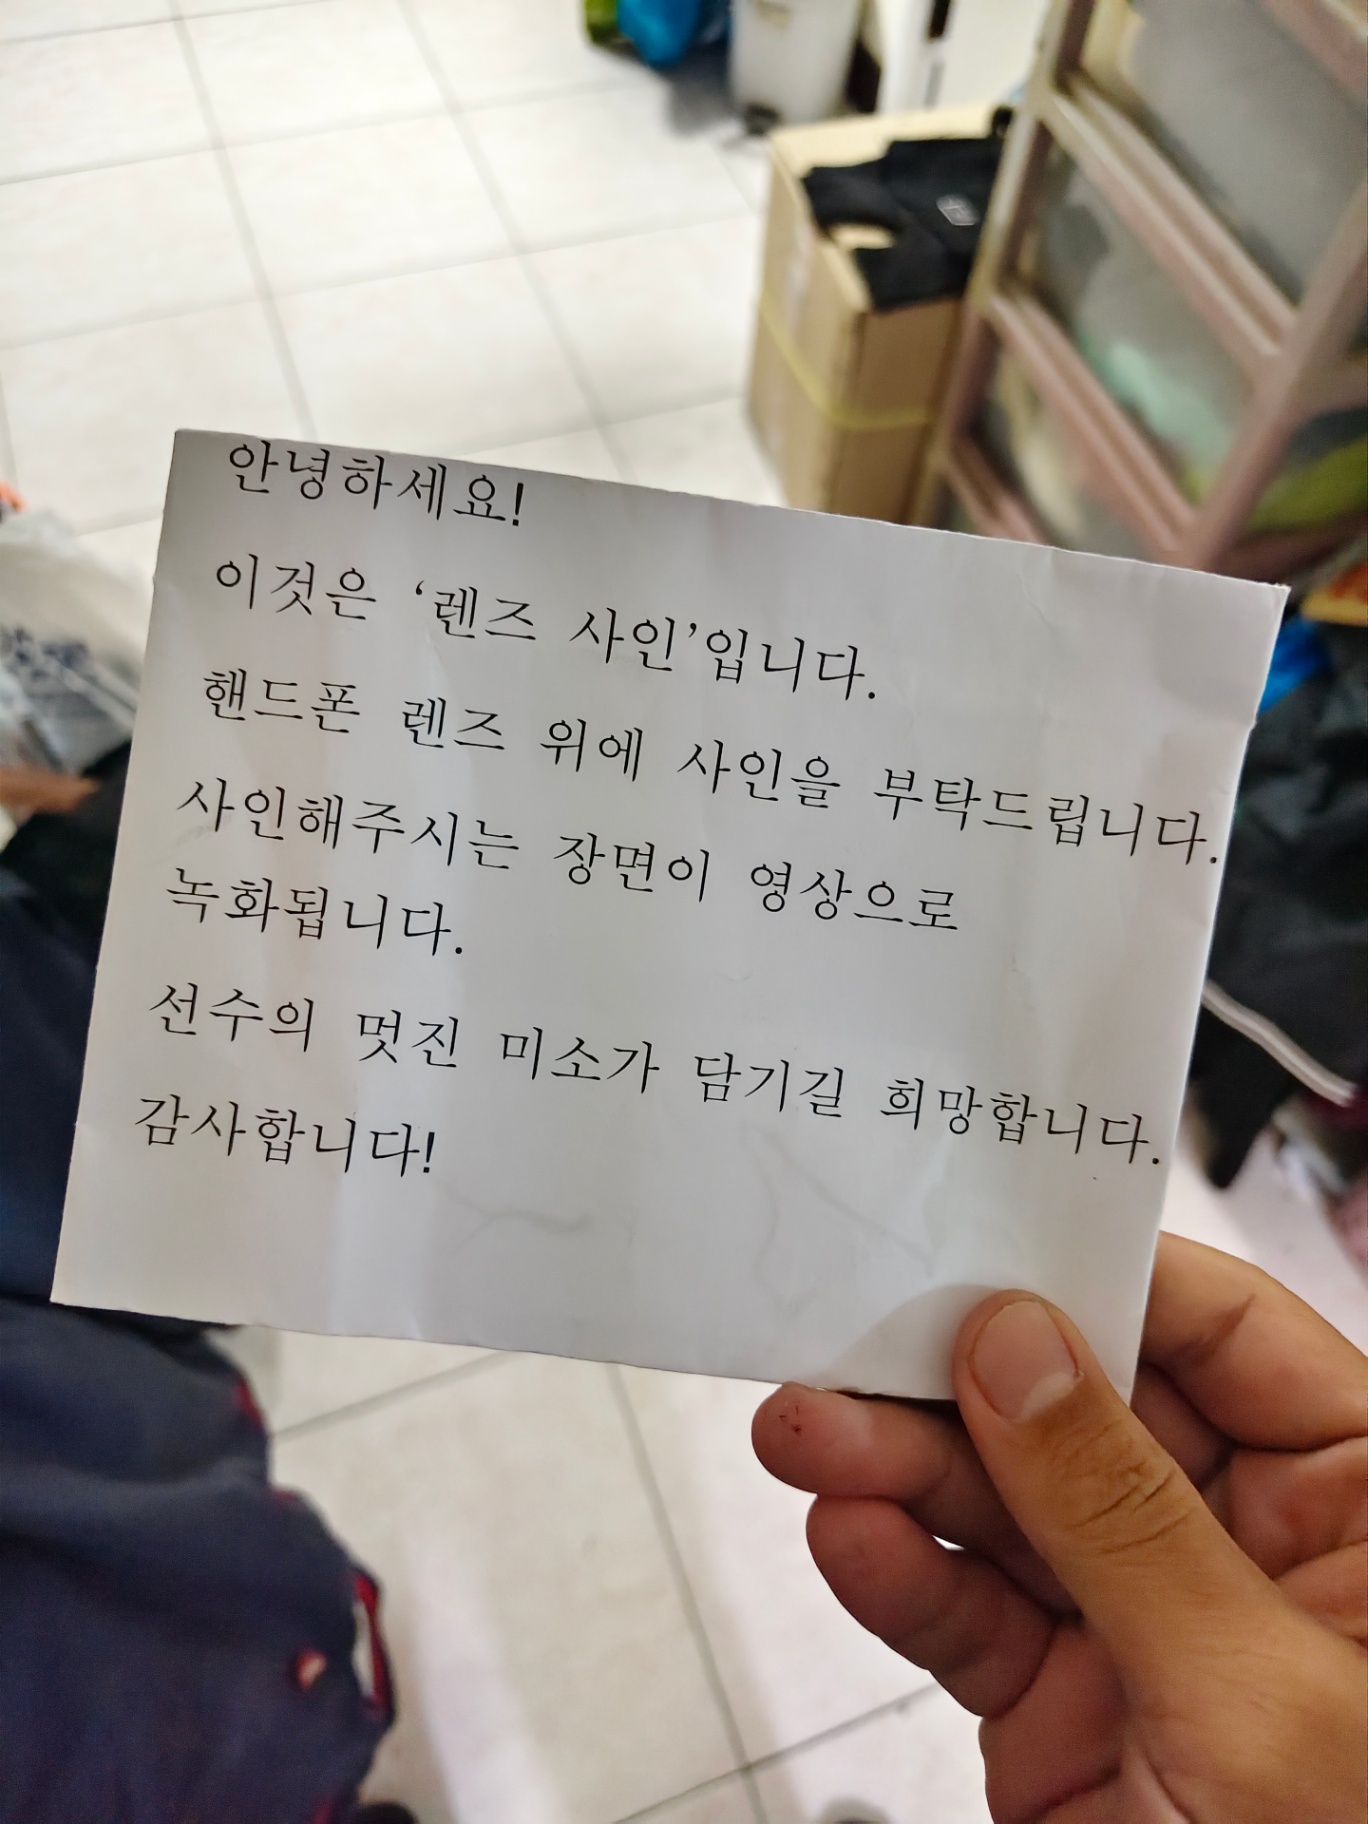 안녕하세요!
이것은 ‘렌즈 사인’입니다.
핸드폰 렌즈 위에 사인을 부탁드립니다.
사인해주시는 장면이 영상으로
녹화됩니다.
선수의 멋진 미소가 담기길 희망합니다.
감사합니다!